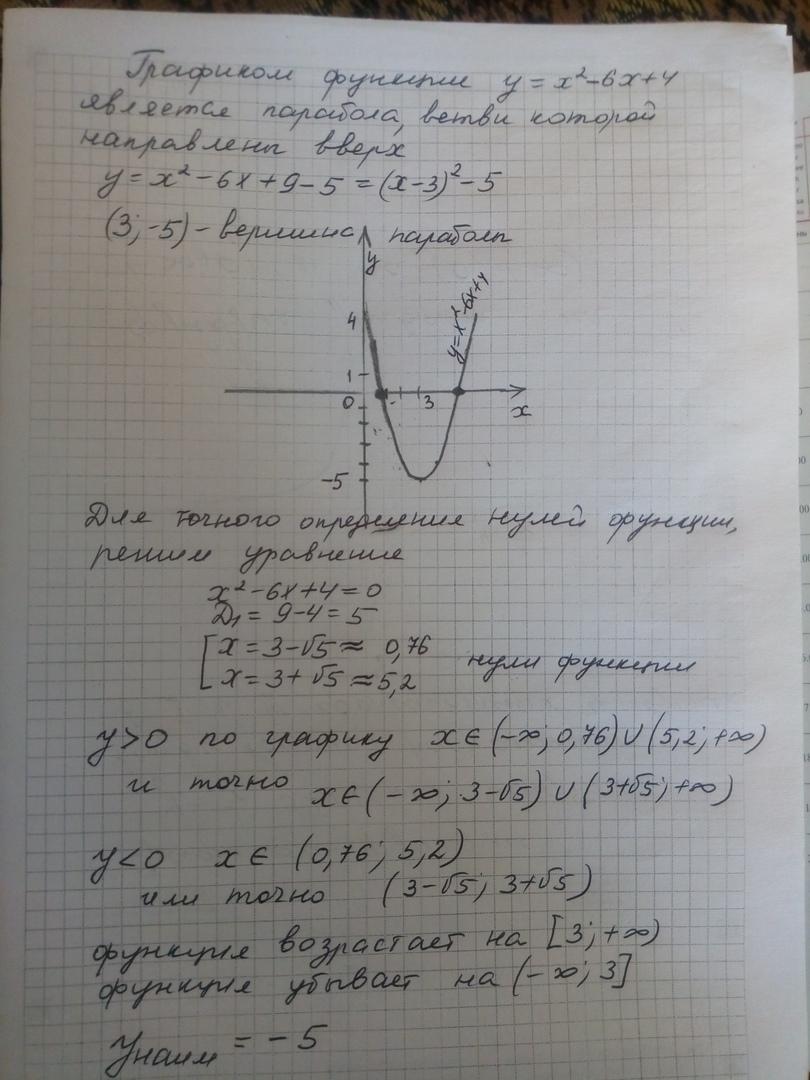 Графиком функции y = x² - 6x + 4
является парабола, ветви которой
направлены вверх
y = x² - 6x + 9 - 5 = (x-3)² - 5
(3; -5) - вершина параболы
y
4
y=x²-6x+4
1
0
3
x
-5
Для точного определения нулей функции,
решим уравнение
x² - 6x + 4 = 0
D₁ = 9 - 4 = 5
[ x = 3 - √5 ≈ 0,76
нули функции
x = 3 + √5 ≈ 5,2
y > 0 по графику x ∈ (-∞; 0,76) ∪ (5,2; +∞)
и точно x ∈ (-∞; 3-√5) ∪ (3+√5; +∞)
y < 0 x ∈ (0,76; 5,2)
или точно (3-√5; 3+√5)
функция возрастает на [3; +∞)
функция убывает на (-∞; 3]
yнаим = -5